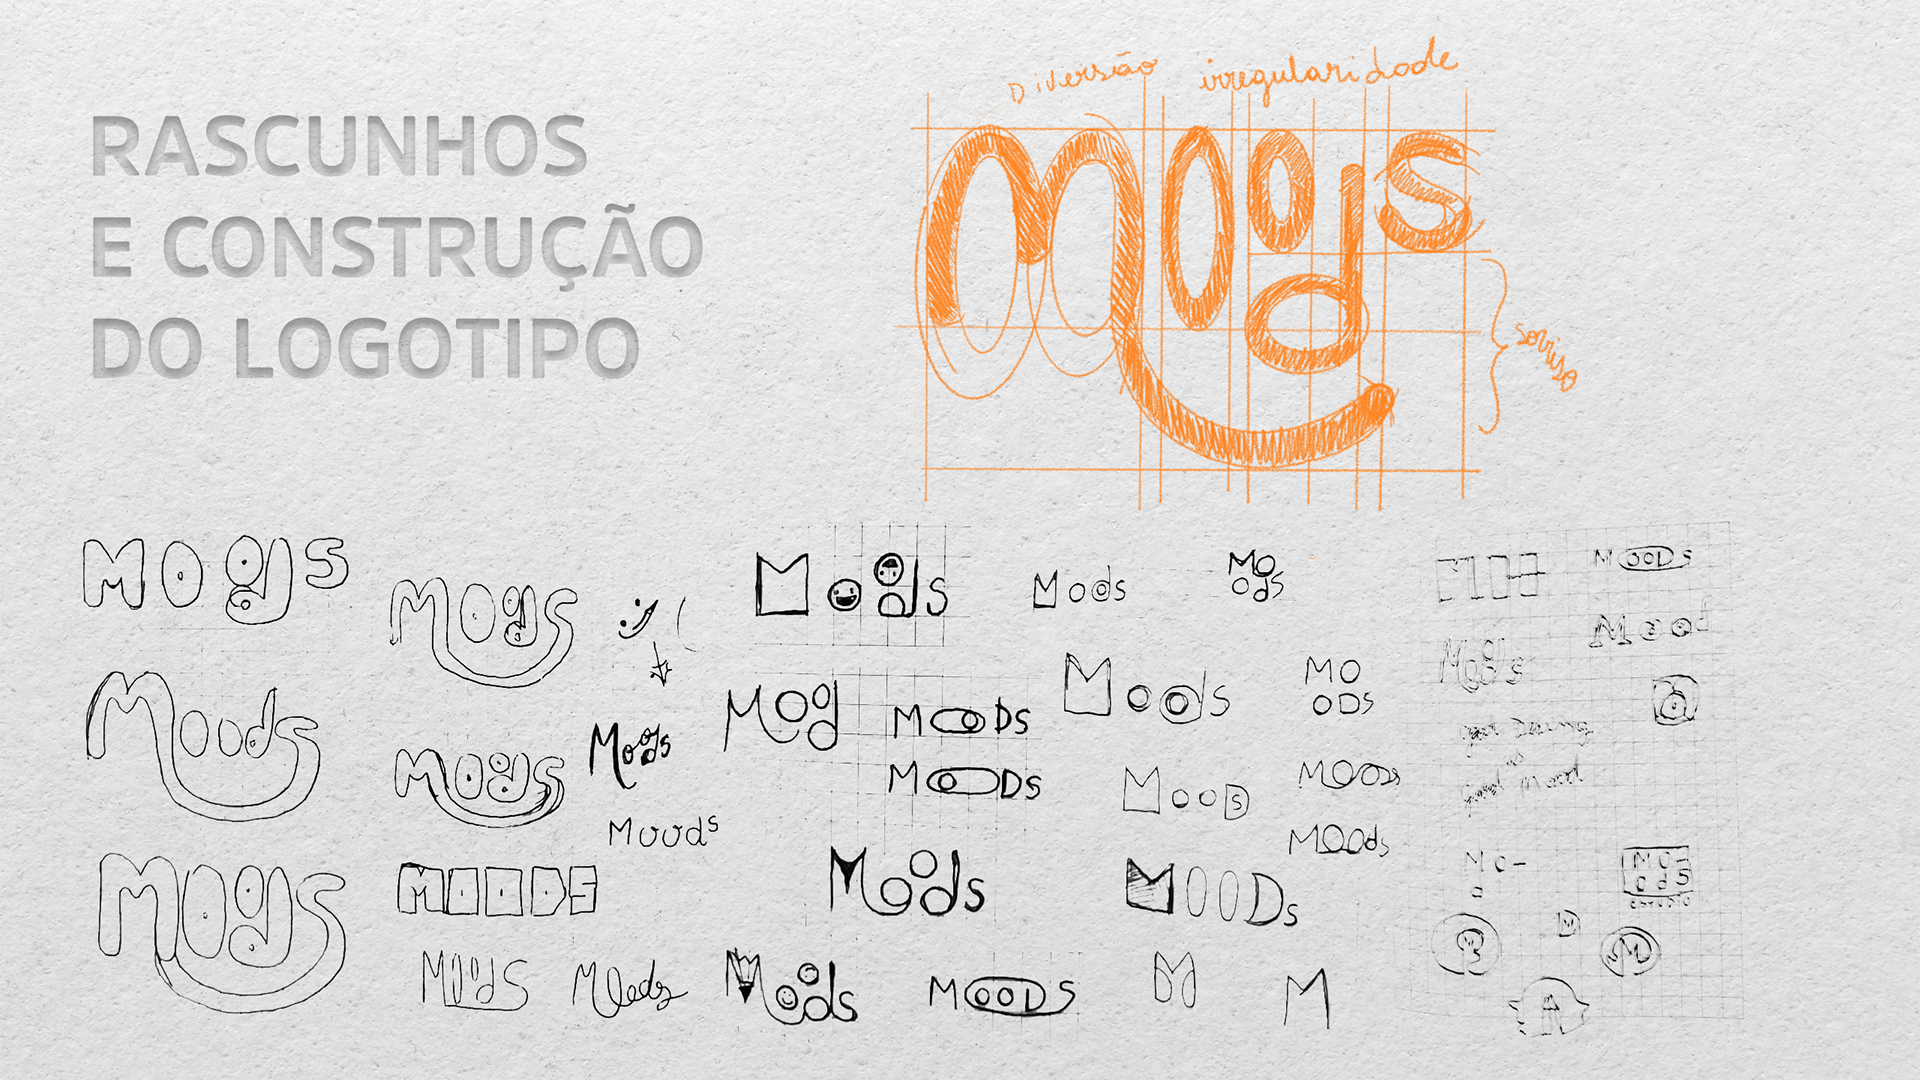 RASCUNHOS
E CONSTRUÇÃO
DO LOGOTIPO
Diversão irregularidade
Moods
sorriso
MOODS
Moods
Moods
Moods
Moods
Moods
Moods
Moods
MOODS
Moods
Moods
Moods
Moods
Mood
MOODS
MOODS
Moods
Moods
MOODS
Moods
MO
ods
Moods
MO
ODS
MooDS
MOODS
MOOds
MOODs
M
M
MOODS
Mood
Moods
Good
as
Good Mood
MO-
MO-
odS
estúdio
M
A